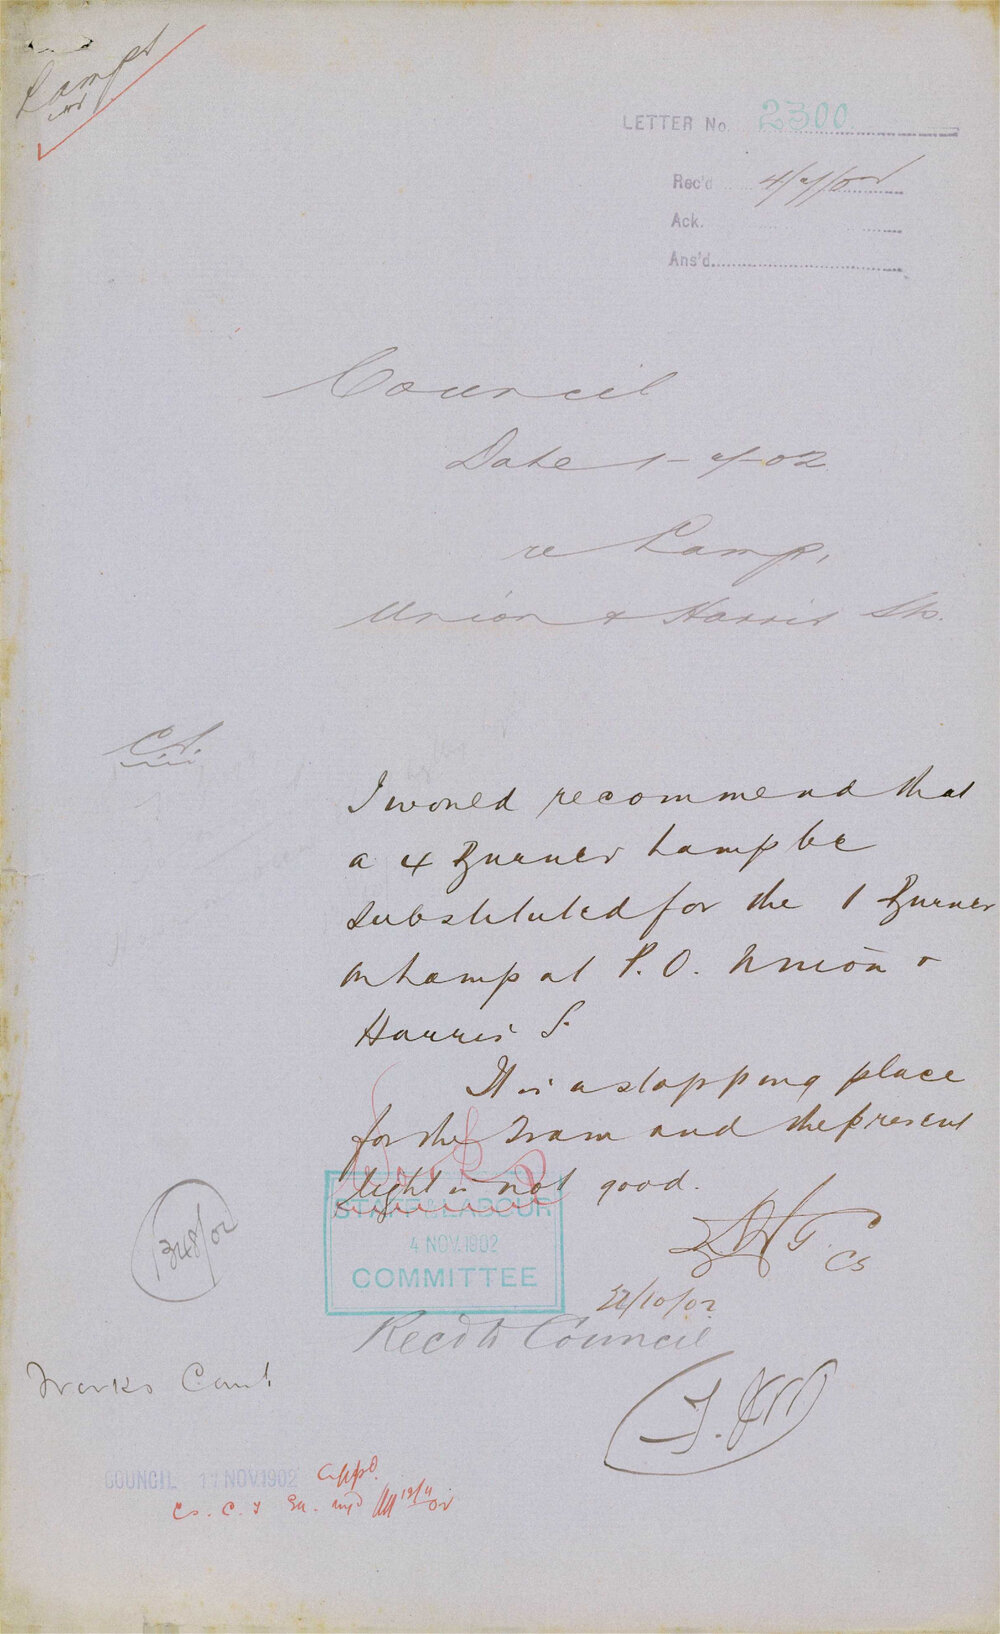 Lamps
LETTER No. 2300
Rec'd 4/9/02
Ack.
Ans'd.
Council
Date 1-9-02
re Lamp,
Union & Harris Sts.
C.S.
I would recommend that
a 4 Burner Lamp be
substituted for the 1 Burner
on Lamp at P.O. Union &
Harris S.
It is a stopping place
for the Tram and the present
light is not good.
STAFF & LABOUR
4 NOV. 1902
COMMITTEE
CS
22/10/02
1348/02
Recd to Council
Works Comt
COUNCIL 11 NOV. 1902 Appd.
Cs. C. T